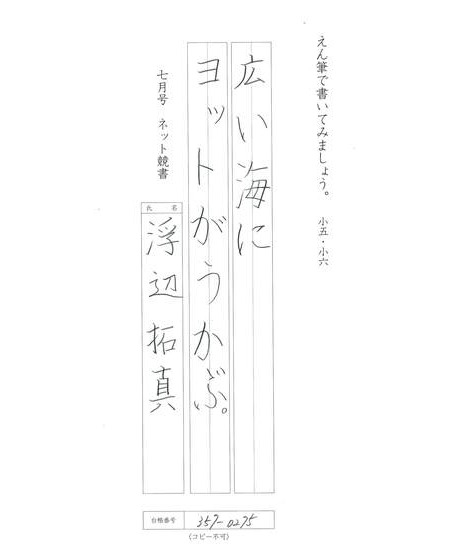 えん筆で書いてみましょう。 小五・小六
広い海に
ヨットがうかぶ。
七月号 ネット競書
氏 名
浮辺拓真
台帳番号 357-0275
(コピー不可)